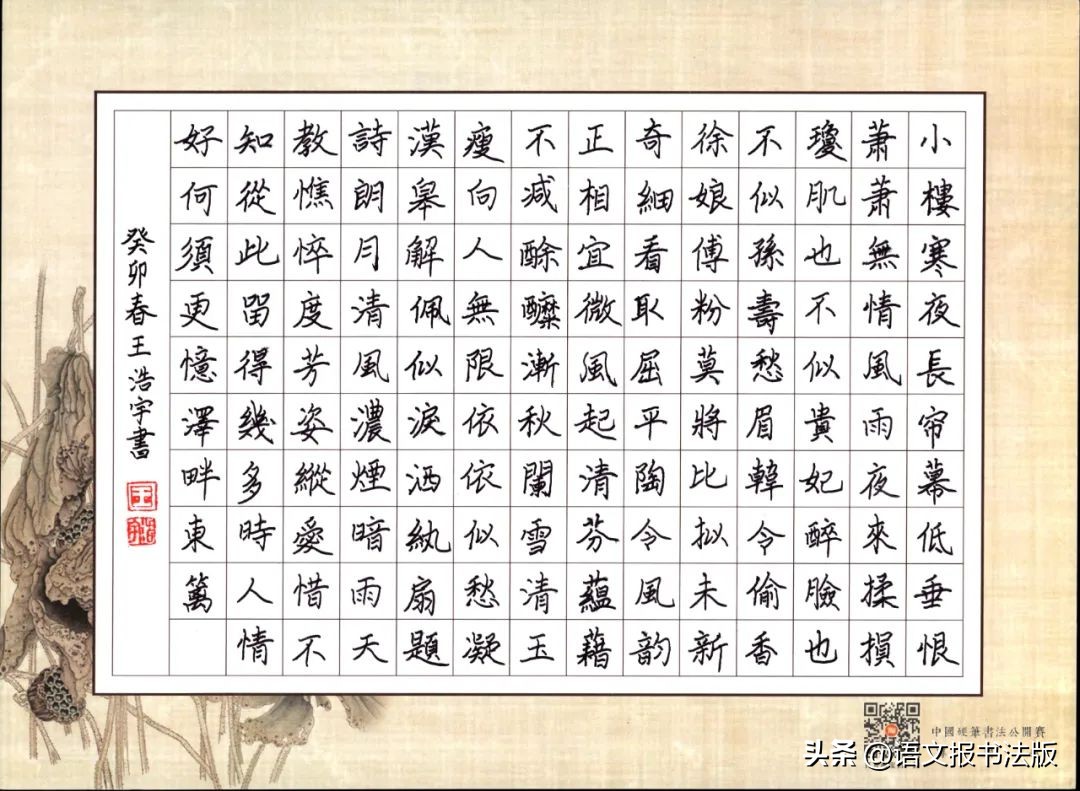 小樓寒夜長帘幕低垂恨
蕭蕭無情風雨夜來揉損
瓊肌也不似貴妃醉臉也
不似孫壽愁眉韓令偷香
徐娘傅粉莫將比拟未新
奇細看取屈平陶令風韵
正相宜微風起清芬蘊藉
不减酴醾漸秋闌雪清玉
瘦向人無限依依似愁凝
漢皋解佩似淚洒紈扇題
詩朗月清風濃煙暗雨天
教憔悴度芳姿縱愛惜不
知從此留得幾多時人情
好何須更憶澤畔東籬
癸卯春王浩宇書
中國硬筆書法公開賽
头条 @语文报书法版